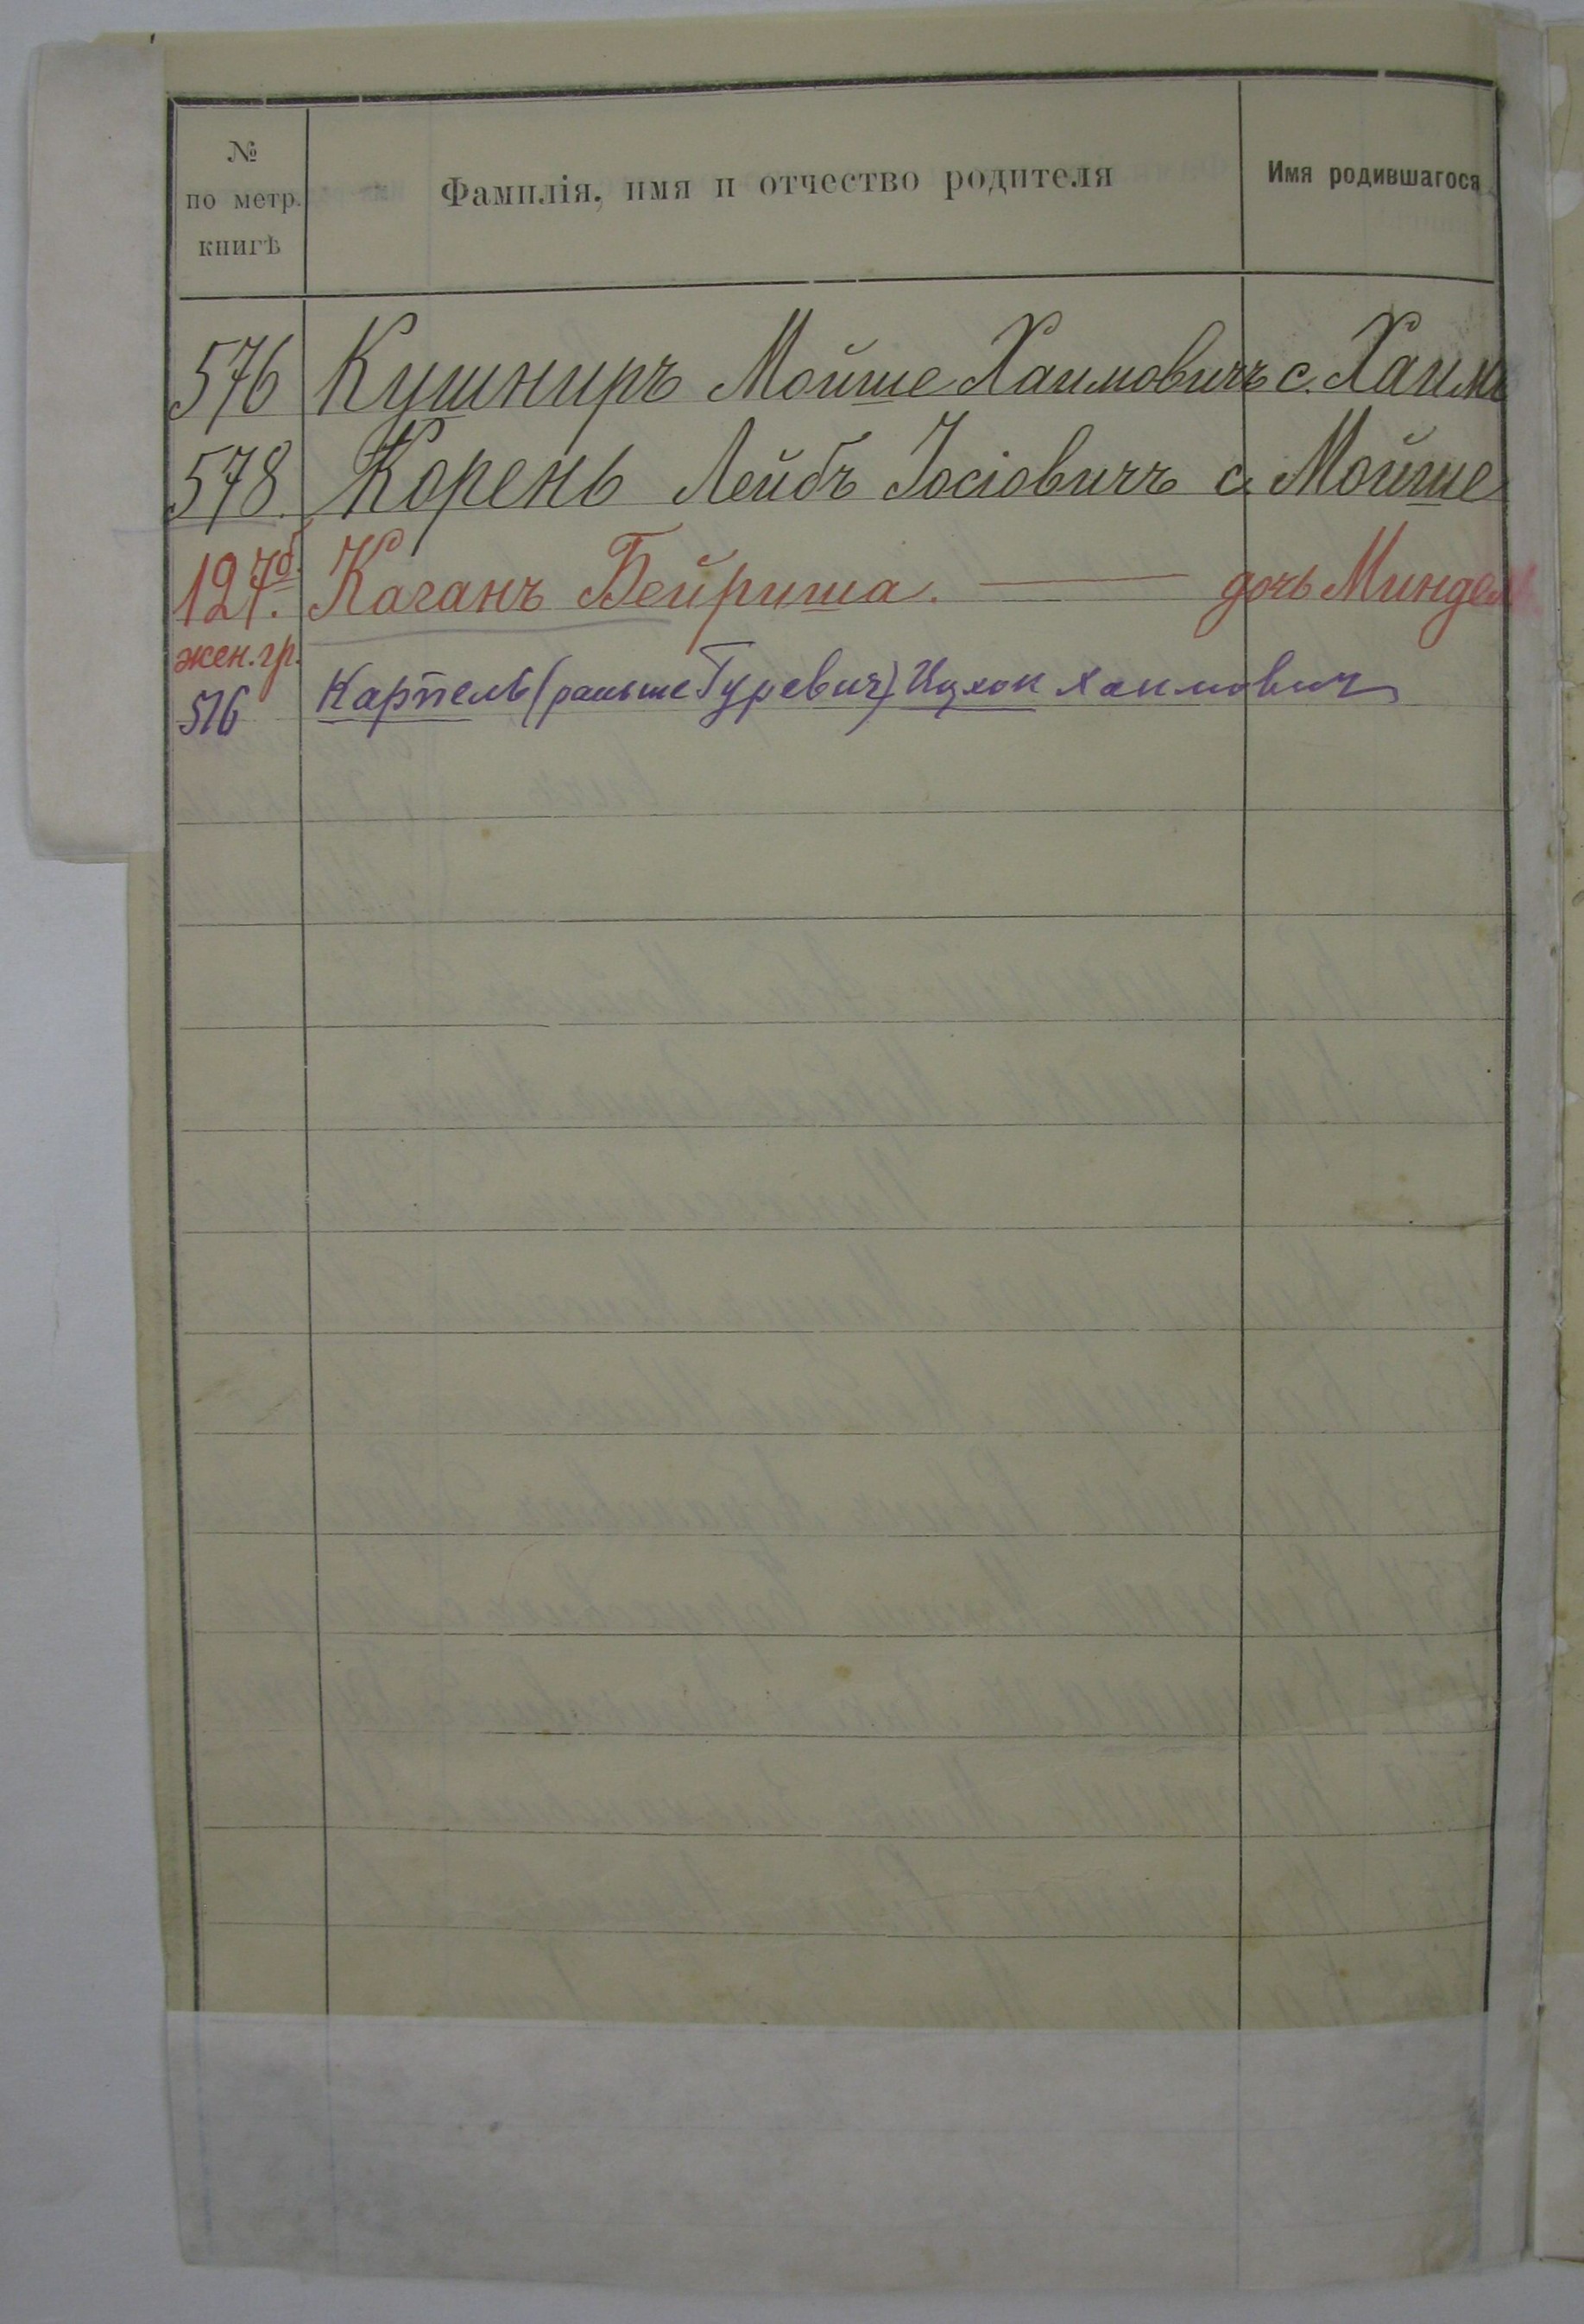 № по метр. книгѣ
Фамилія, имя и отчество родителя
Имя родившагося
576 Кушниръ Мойше Хаимовичъ с. Хаимъ
578. Корень Лейбъ Іосіовичъ с. Мойше
127. Каганъ Бейриша. — дочь Миндель
жен. гр.
516 Карпель (раньше Гуревич) Ицхок Хаимович